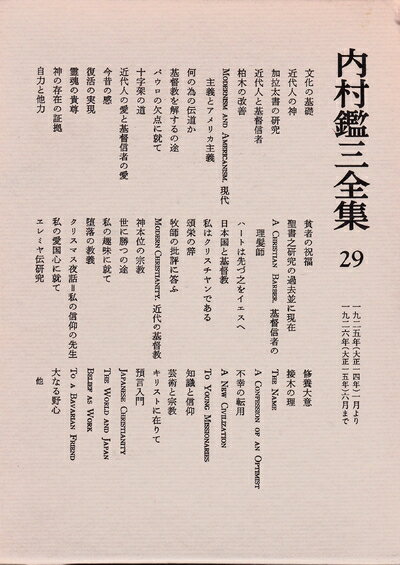 内村鑑三全集 29
一九二五年(大正一四年)一月より
一九二六年(大正一五年)六月まで
文化の基礎
近代人の神
加拉太書の研究
近代人と基督信者
柏木の改善
MODERNISM AND AMERICANISM. 現代
主義とアメリカ主義
何の為の伝道か
基督教を解するの途
パウロの欠点に就て
十字架の道
近代人の愛と基督信者の愛
今昔の感
復活の実現
霊魂の貴尊
神の存在の証拠
自力と他力
貧者の祝福
聖書之研究の過去並に現在
A CHRISTIAN BARBER. 基督信者の
理髪師
ハートは先づ之をイエスへ
日本国と基督教
私はクリスチヤンである
頌栄の辞
牧師の批評に答ふ
MODERN CHRISTIANITY. 近代の基督教
神本位の宗教
世に勝つの途
私の趣味に就て
堕落の教義
クリスマス夜話=私の信仰の先生
私の愛国心に就て
ヱレミヤ伝研究
修養大意
接木の理
THE NAME
A CONFESSION OF AN OPTIMIST
不幸の転用
A NEW CIVILIZATION
TO YOUNG MISSIONARIES
知識と信仰
芸術と宗教
キリストに在りて
預言入門
JAPANESE CHRISTIANITY
THE WORLD AND JAPAN
BELIEF AS WORK
TO A BAVARIAN FRIEND
大なる野心
他